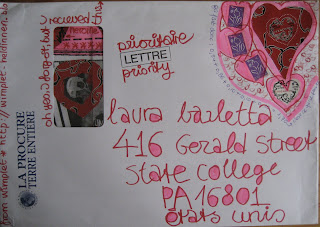 from wimplet * http://wimplet.heldinnen.
oh yes, i forgot, but i recieved this
heroine
LA PROCURE
TERRE ENTIÈRE
prioritaire
LETTRE
priority
laura barletta
416 Gerald Street
State college
PA 16801
états unis